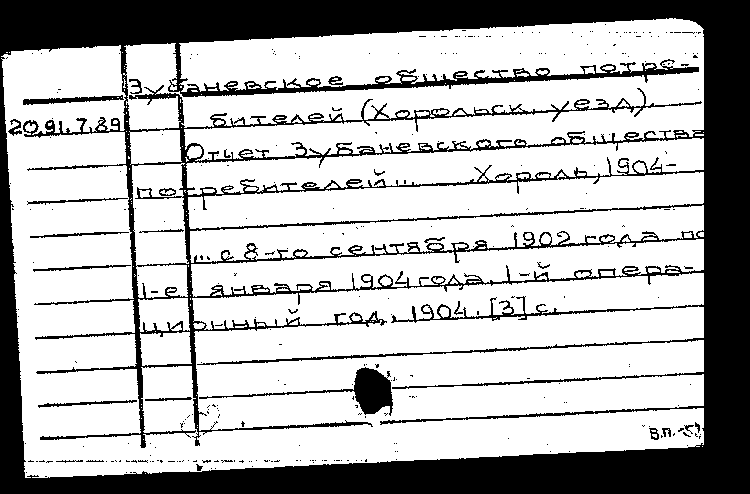 Зубаневское общество потре-
бителей (Хорольск. уезд).
20.91.7.89
Отчет Зубаневского общества
потребителей... Хороль, 1904-
... с 8-го сентября 1902 года по
1-е января 1904 года. 1-й опера-
ционный год. 1904. [3] с.
В.П.